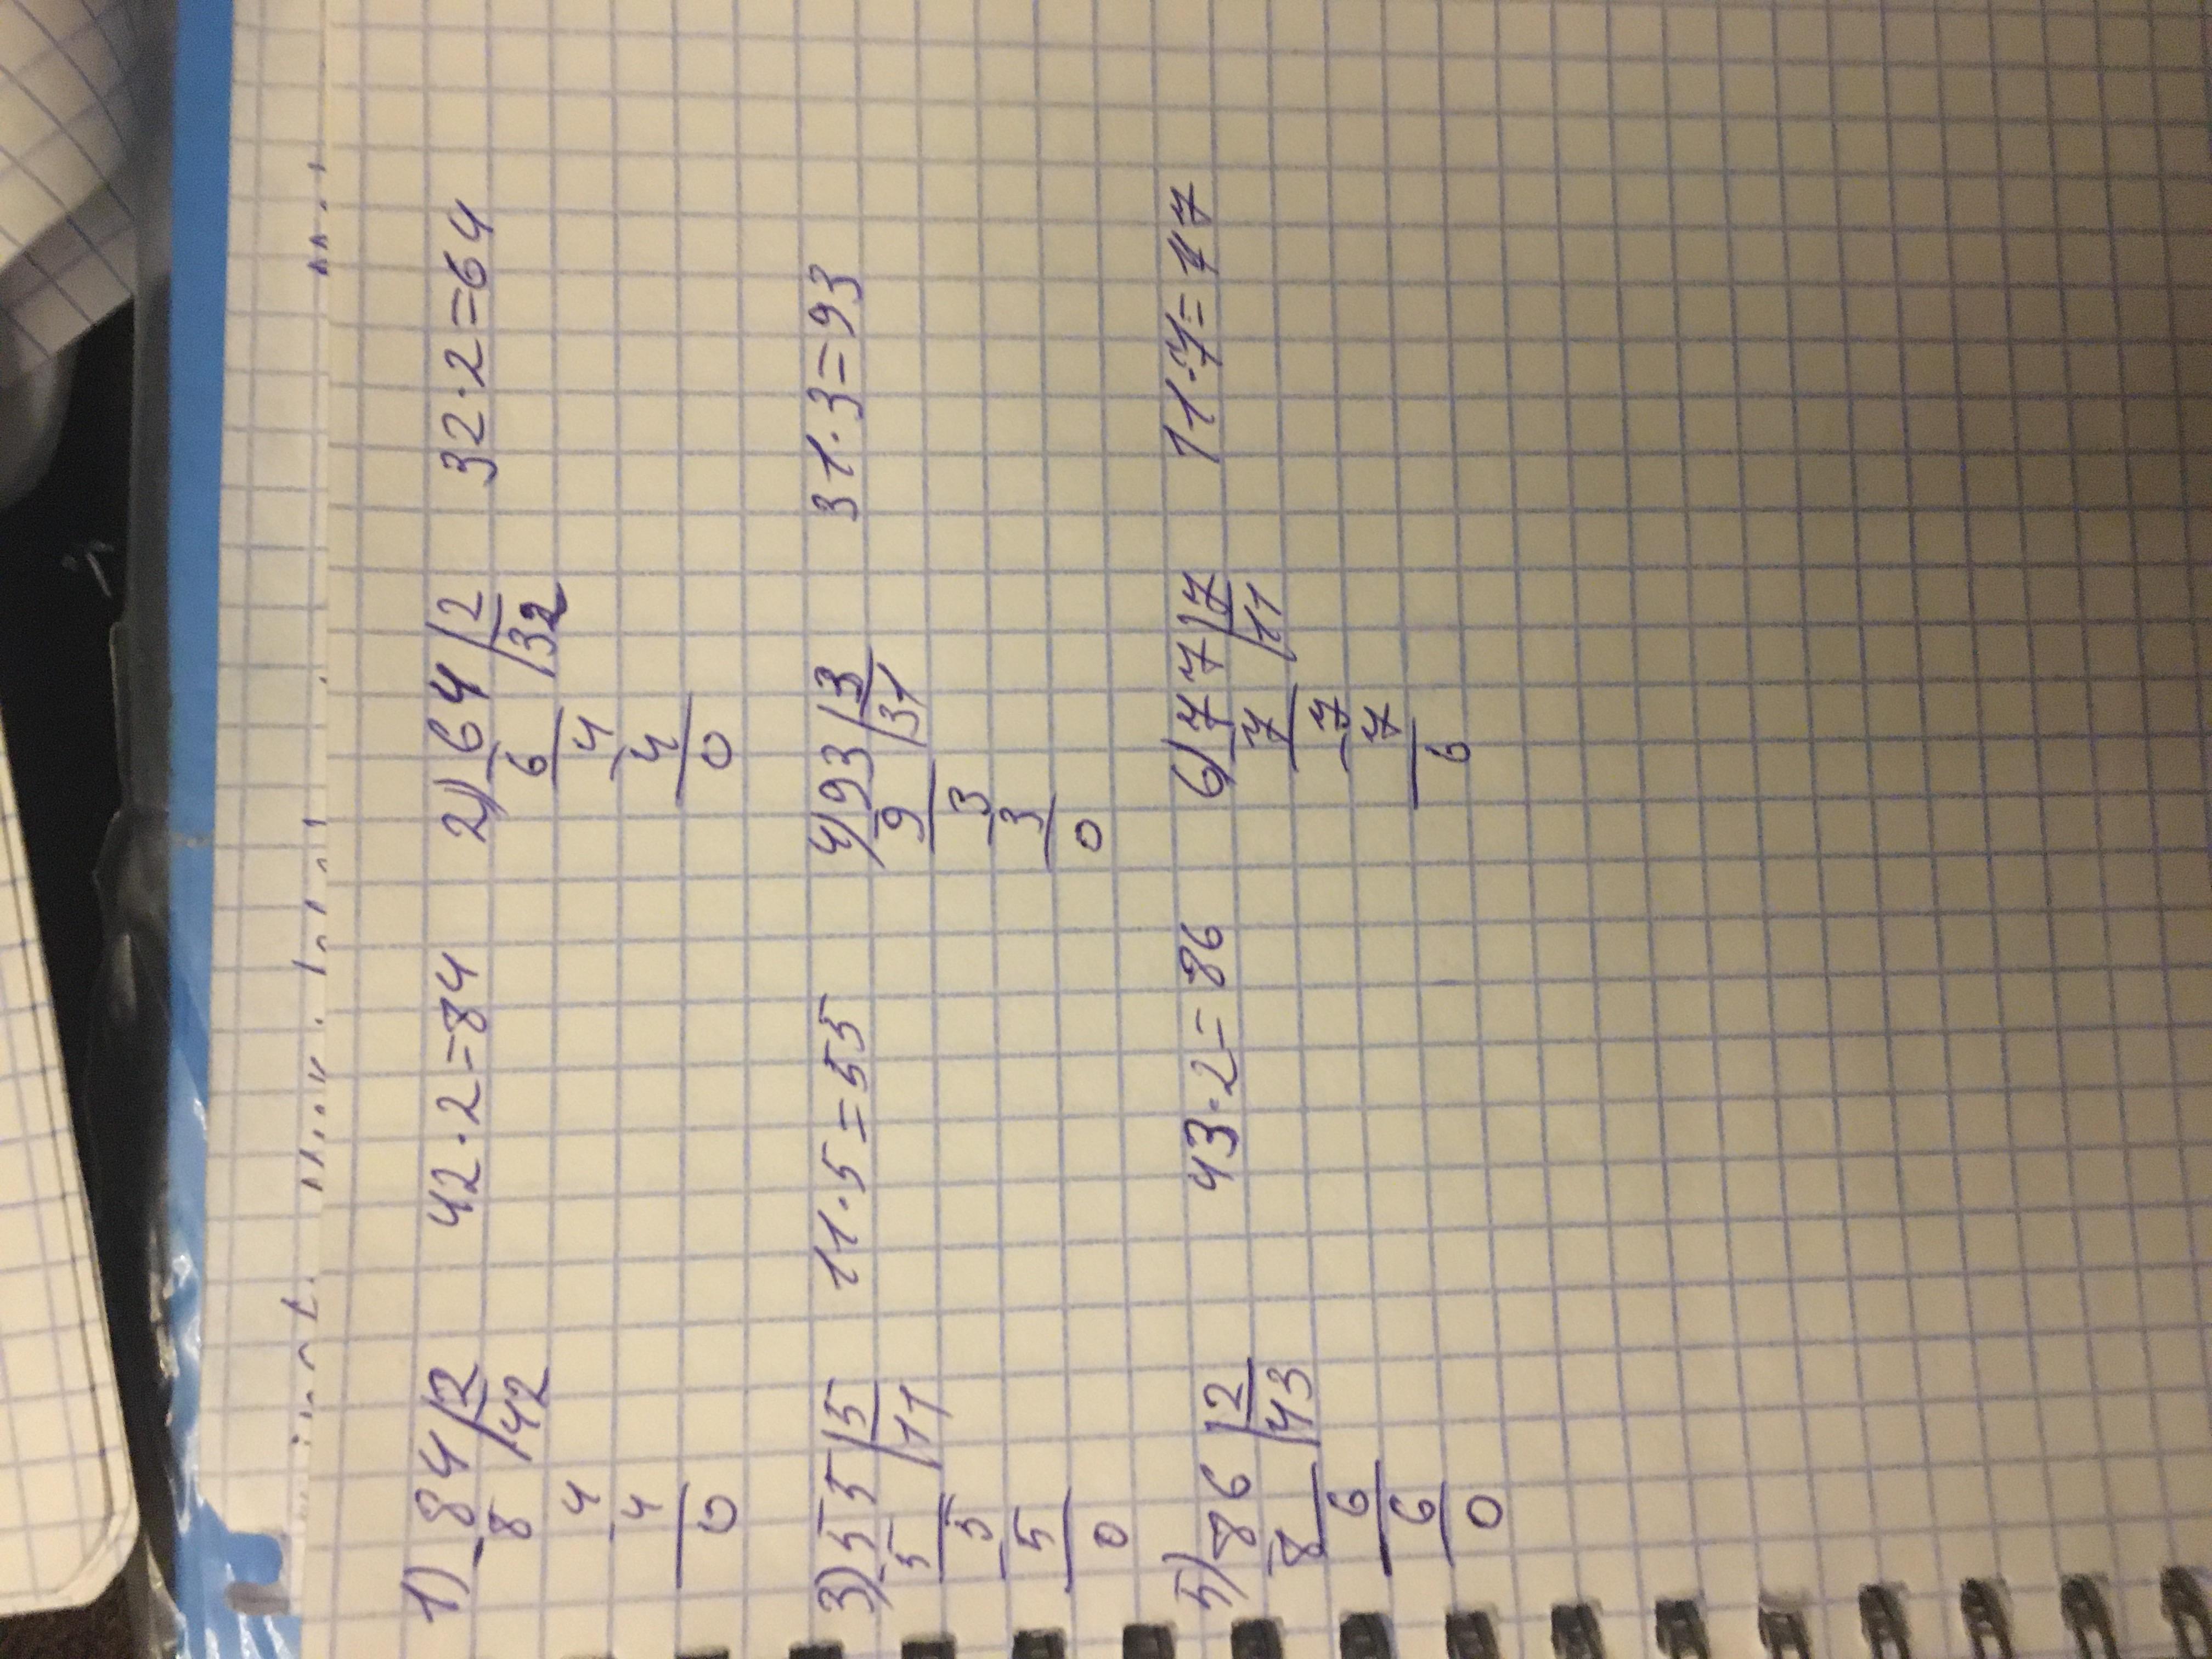 1) 84 | 2   42 · 2 = 84   2) 64 | 2   32 · 2 = 64
- 8 | 42   - 6 | 32
4   4
- 4   - 4
0   0
3) 55 | 5   11 · 5 = 55   4) 93 | 3   31 · 3 = 93
- 5 | 11   - 9 | 31
5   3
- 5   - 3
0   0
5) 86 | 2   43 · 2 = 86   6) 77 | 7   11 · 7 = 77
- 8 | 43   - 7 | 11
6   7
6   - 7
0   0